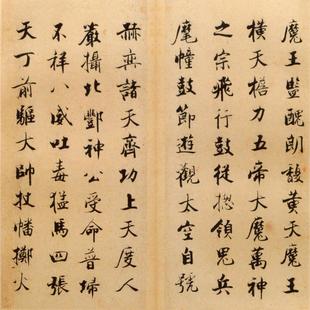 魔王監醜朗馥黃天魔王
橫天檐力五帝大魔萬神
之宗飛行鼓從揔領鬼兵
麾幢鼓節遊觀太空自號
赫奕諸天齊功上天度人
嚴攝北酆神公受命普掃
不祥八威吐毒猛馬四張
天丁前驅大帥仗幡擲火